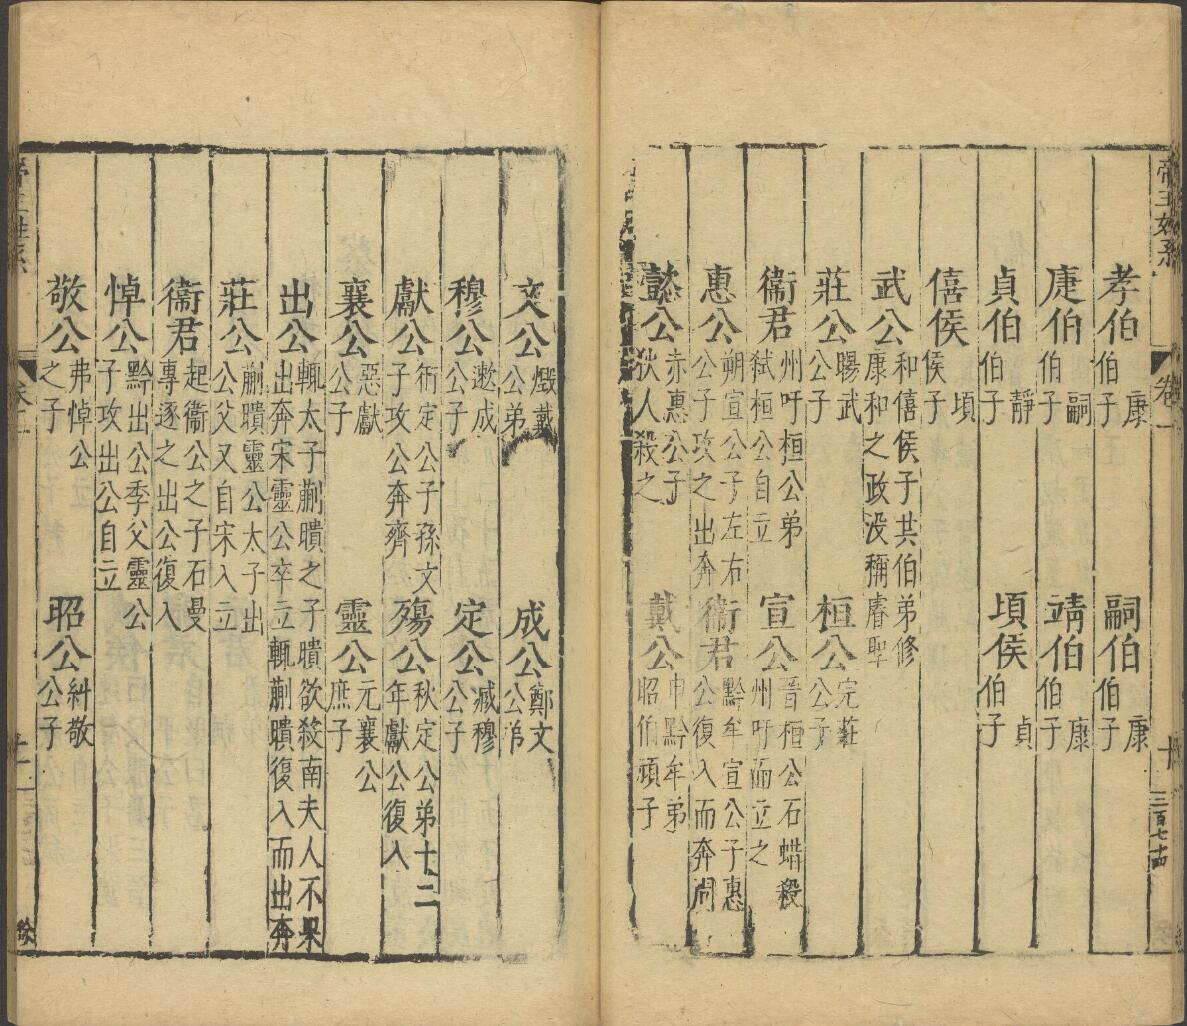 帝王姓系
卷一
十
三百七十四
孝伯 康伯子 嗣伯 康伯子
庚伯 嗣伯子 靖伯 康伯子
貞伯 靜伯子 頃侯 貞伯子
僖侯 頃侯子
武公 和僖侯子共伯弟修康和之政没稱睿聖
莊公 暘武公子 桓公 完莊公子
衞君 州吁桓公弟弑桓公自立 宣公 晉桓公石蜡殺州吁而立之
惠公 朔宣公子左右公子攻之出奔 衞君 黔牟宣公子惠公復入而奔周
懿公 赤惠公子狄人殺之 戴公 申黔牟弟昭伯頑子
文公 燬戴公弟 成公 鄭文公
穆公 遬成公子 定公 臧穆公子
獻公 衎定公子孫文子攻公奔齊 殤公 秋定公弟十二年獻公復入
襄公 惡獻公子 靈公 元襄公庶子
出公 輒太子蒯聵之子聵欲殺南夫人不果出奔宋靈公卒立輒蒯聵復入而出奔
莊公 蒯聵靈公太子出公父又自宋入立
衞君 起衞公之子石曼專逐之出公復入
悼公 黔出公季父靈公子攻出公自立
敬公 弗悼公之子 昭公 糾敬公子
帝王姓系
卷一
十一